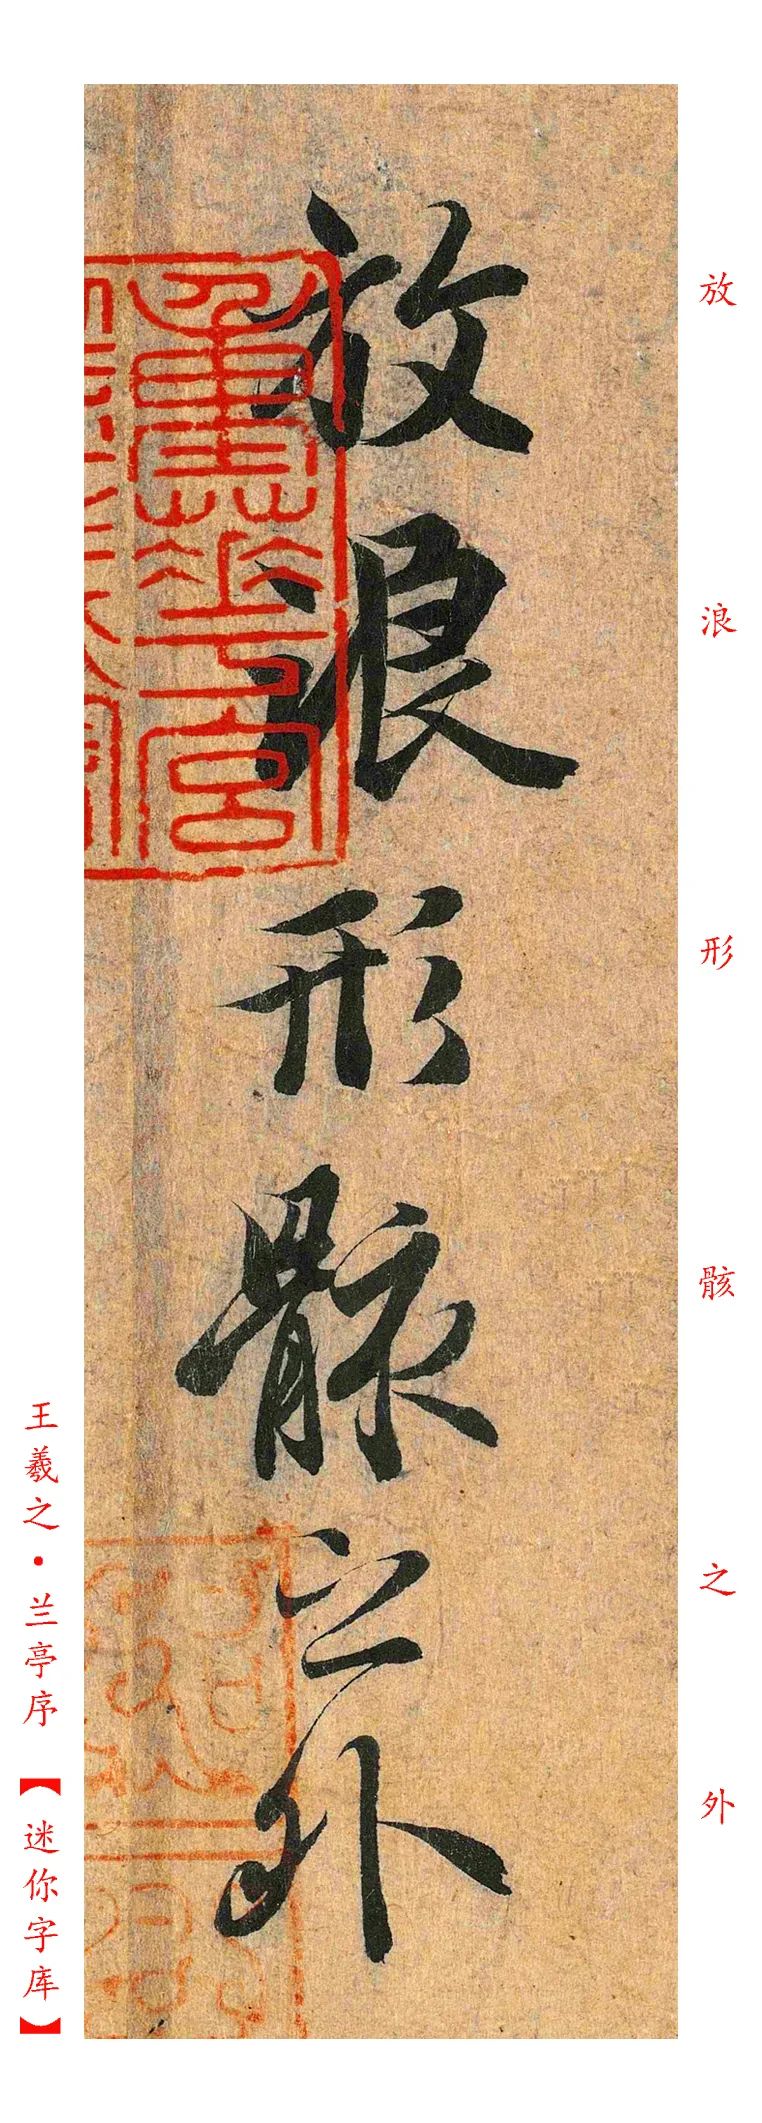 放浪形骸之外
放浪形骸之外
王羲之·兰亭序【迷你字库】